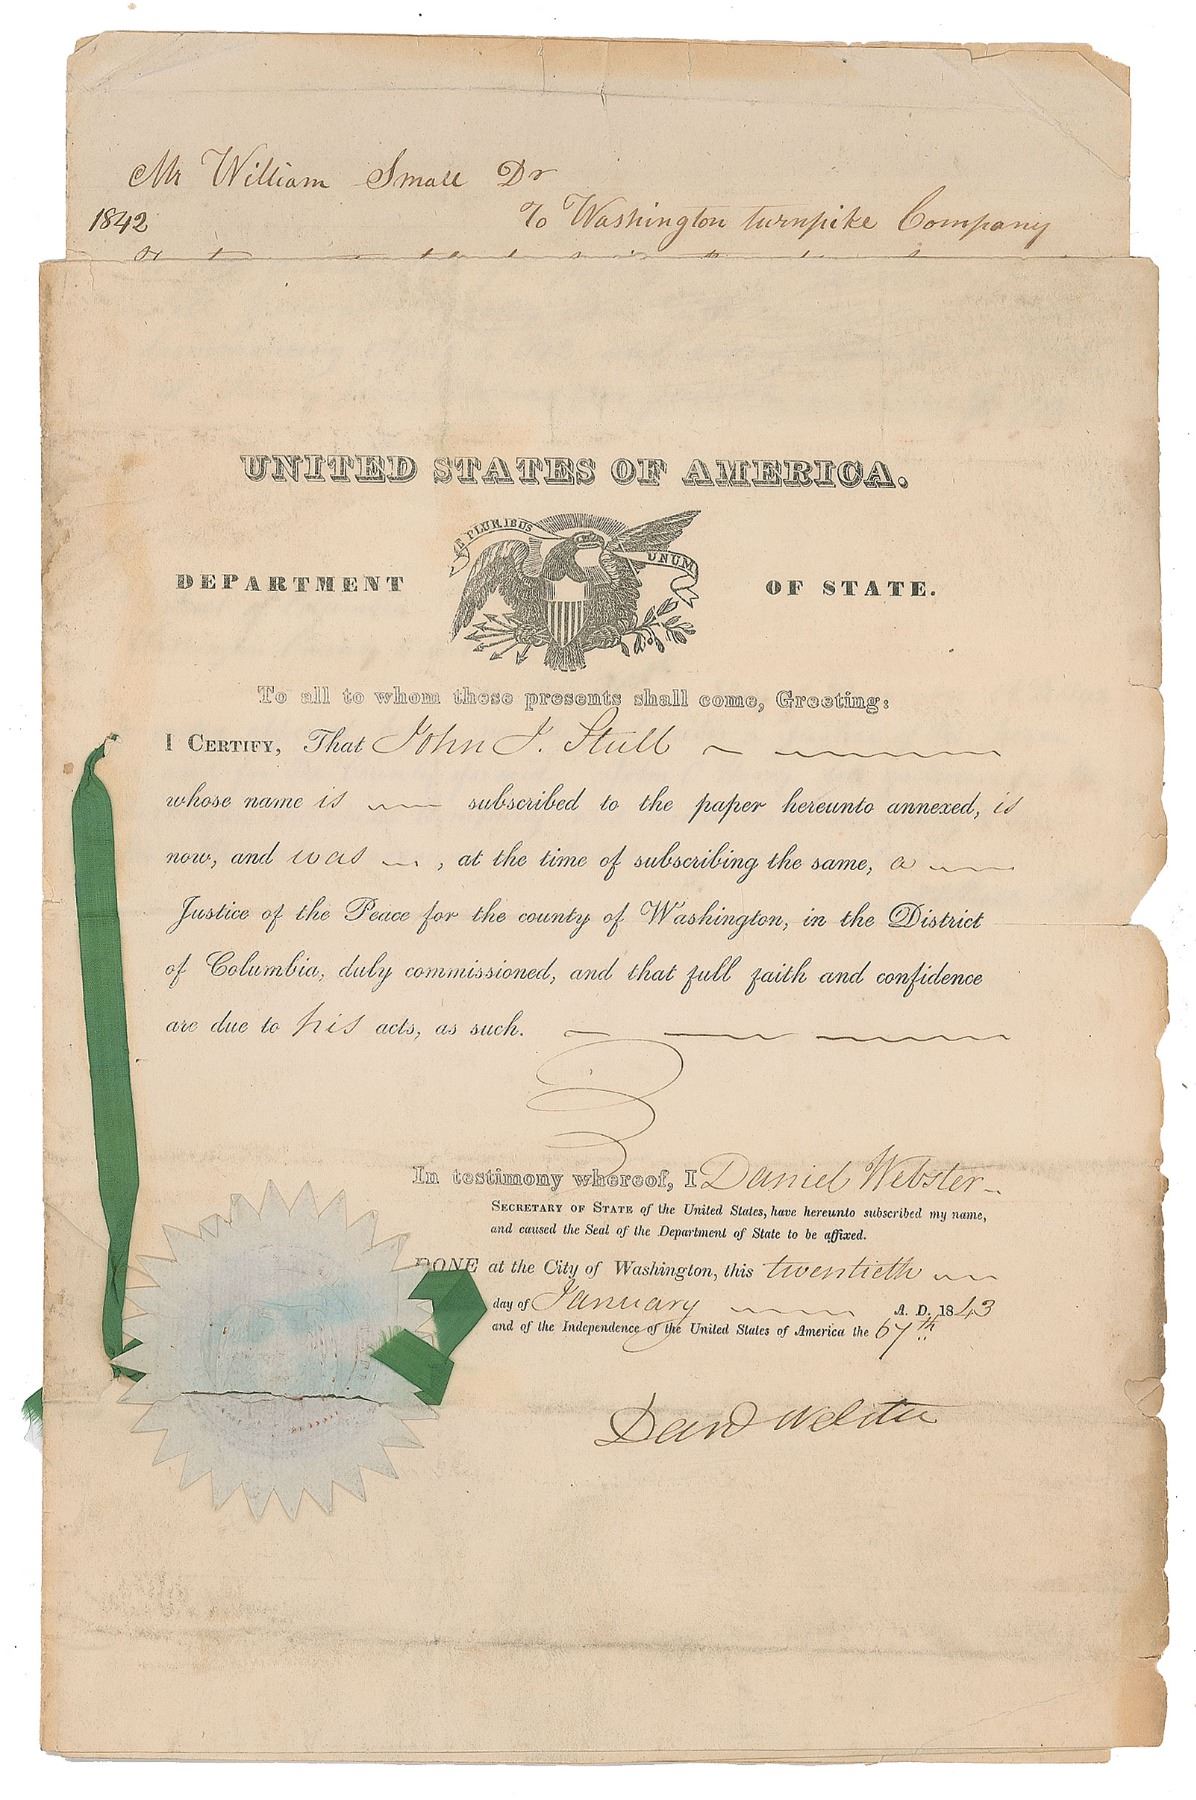 Mr William Small Dr
1842 To Washington turnpike Company
UNITED STATES OF AMERICA.
E PLURIBUS UNUM
DEPARTMENT OF STATE.
To all to whom these presents shall come, Greeting:
I CERTIFY, That John J. Stull
whose name is subscribed to the paper hereunto annexed, is
now, and was , at the time of subscribing the same, a
Justice of the Peace for the county of Washington, in the District
of Columbia, duly commissioned, and that full faith and confidence
are due to his acts, as such.
In testimony whereof, I Daniel Webster
SECRETARY OF STATE of the United States, have hereunto subscribed my name,
and caused the Seal of the Department of State to be affixed.
DONE at the City of Washington, this twentieth
day of January A. D. 1843
and of the Independence of the United States of America the 67th
Danl Webster